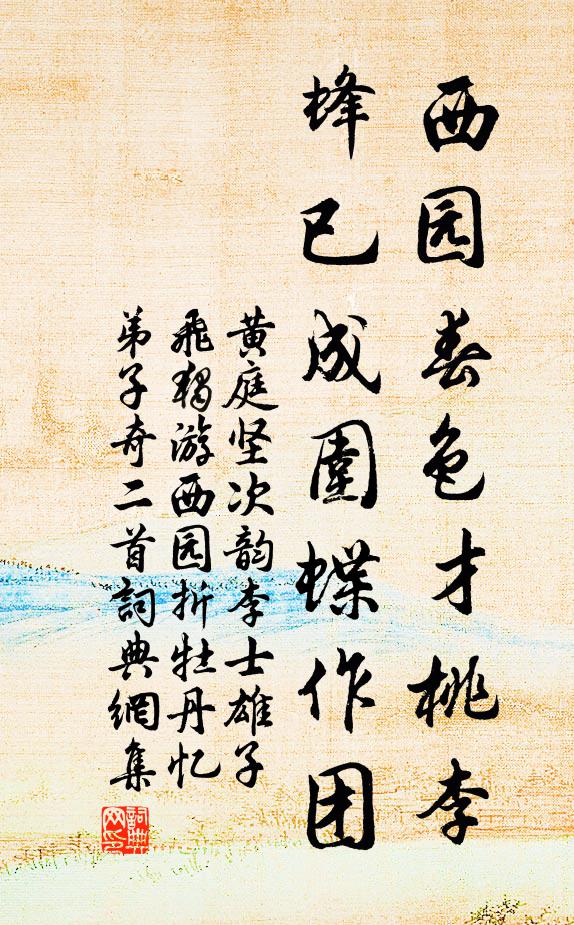 西园春色才桃李
蜂已成圍蝶作团
黄庭坚次韵李士雄子
飛獨游西园折牡丹忆
弟子奇二首詞典網集
詞典网印